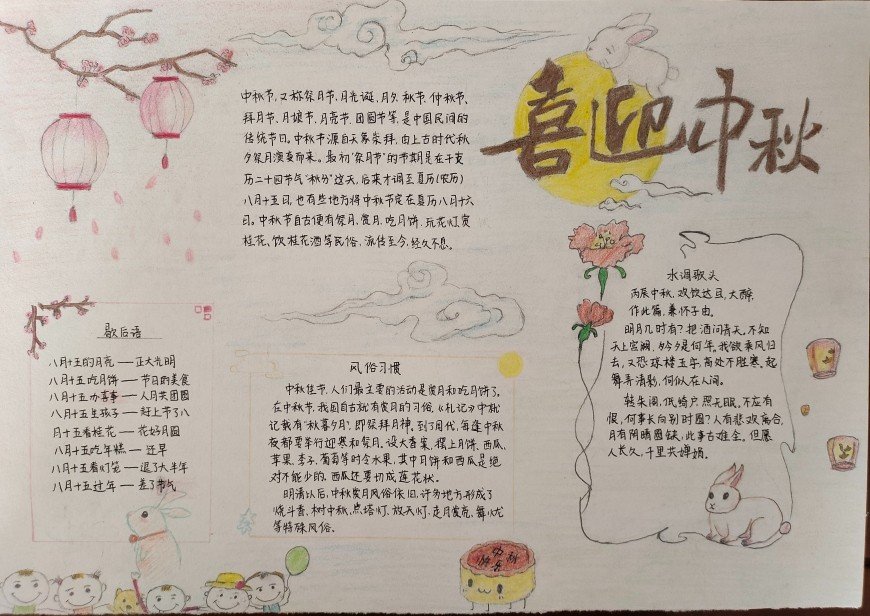 喜迎中秋
中秋节，又称祭月节、月光诞、月夕、秋节、仲秋节、
拜月节、月娘节、月亮节、团圆节等，是中国民间的
传统节日。中秋节源自天象崇拜，由上古时代秋
夕祭月演变而来。最初“祭月节”的节期是在干支
历二十四节气“秋分”这天，后来才调至夏历（农历）
八月十五日，也有些地方将中秋节定在夏历八月十六
日。中秋节自古便有祭月、赏月、吃月饼、玩花灯、赏
桂花、饮桂花酒等民俗，流传至今，经久不息。
歇后语
八月十五的月亮——正大光明
八月十五吃月饼——节日的美食
八月十五办喜事——人月共团圆
八月十五生孩子——赶上节了八
月十五看桂花——花好月圆
八月十五吃年糕——还早
八月十五看灯笼——迟了大半年
八月十五过年——差了节气
风俗习惯
中秋佳节，人们最主要的活动是赏月和吃月饼了。
在中秋节，我国自古就有赏月的习俗，《礼记》中就
记载有“秋暮夕月”，即祭拜月神。到了周代，每逢中秋
夜都要举行迎寒和祭月。设大香案，摆上月饼、西瓜、
苹果、李子、葡萄等时令水果，其中月饼和西瓜是绝
对不能少的，西瓜还要切成莲花状。
明清以后，中秋赏月风俗依旧，许多地方形成了
烧斗香、树中秋、点塔灯、放天灯、走月亮、舞火龙
等特殊风俗。
水调歌头
丙辰中秋，欢饮达旦，大醉，
作此篇，兼怀子由。
明月几时有？把酒问青天。不知
天上宫阙，今夕是何年。我欲乘风归
去，又恐琼楼玉宇，高处不胜寒。起
舞弄清影，何似在人间。
转朱阁，低绮户，照无眠。不应有
恨，何事长向别时圆？人有悲欢离合，
月有阴晴圆缺，此事古难全。但愿
人长久，千里共婵娟。
中秋
快乐